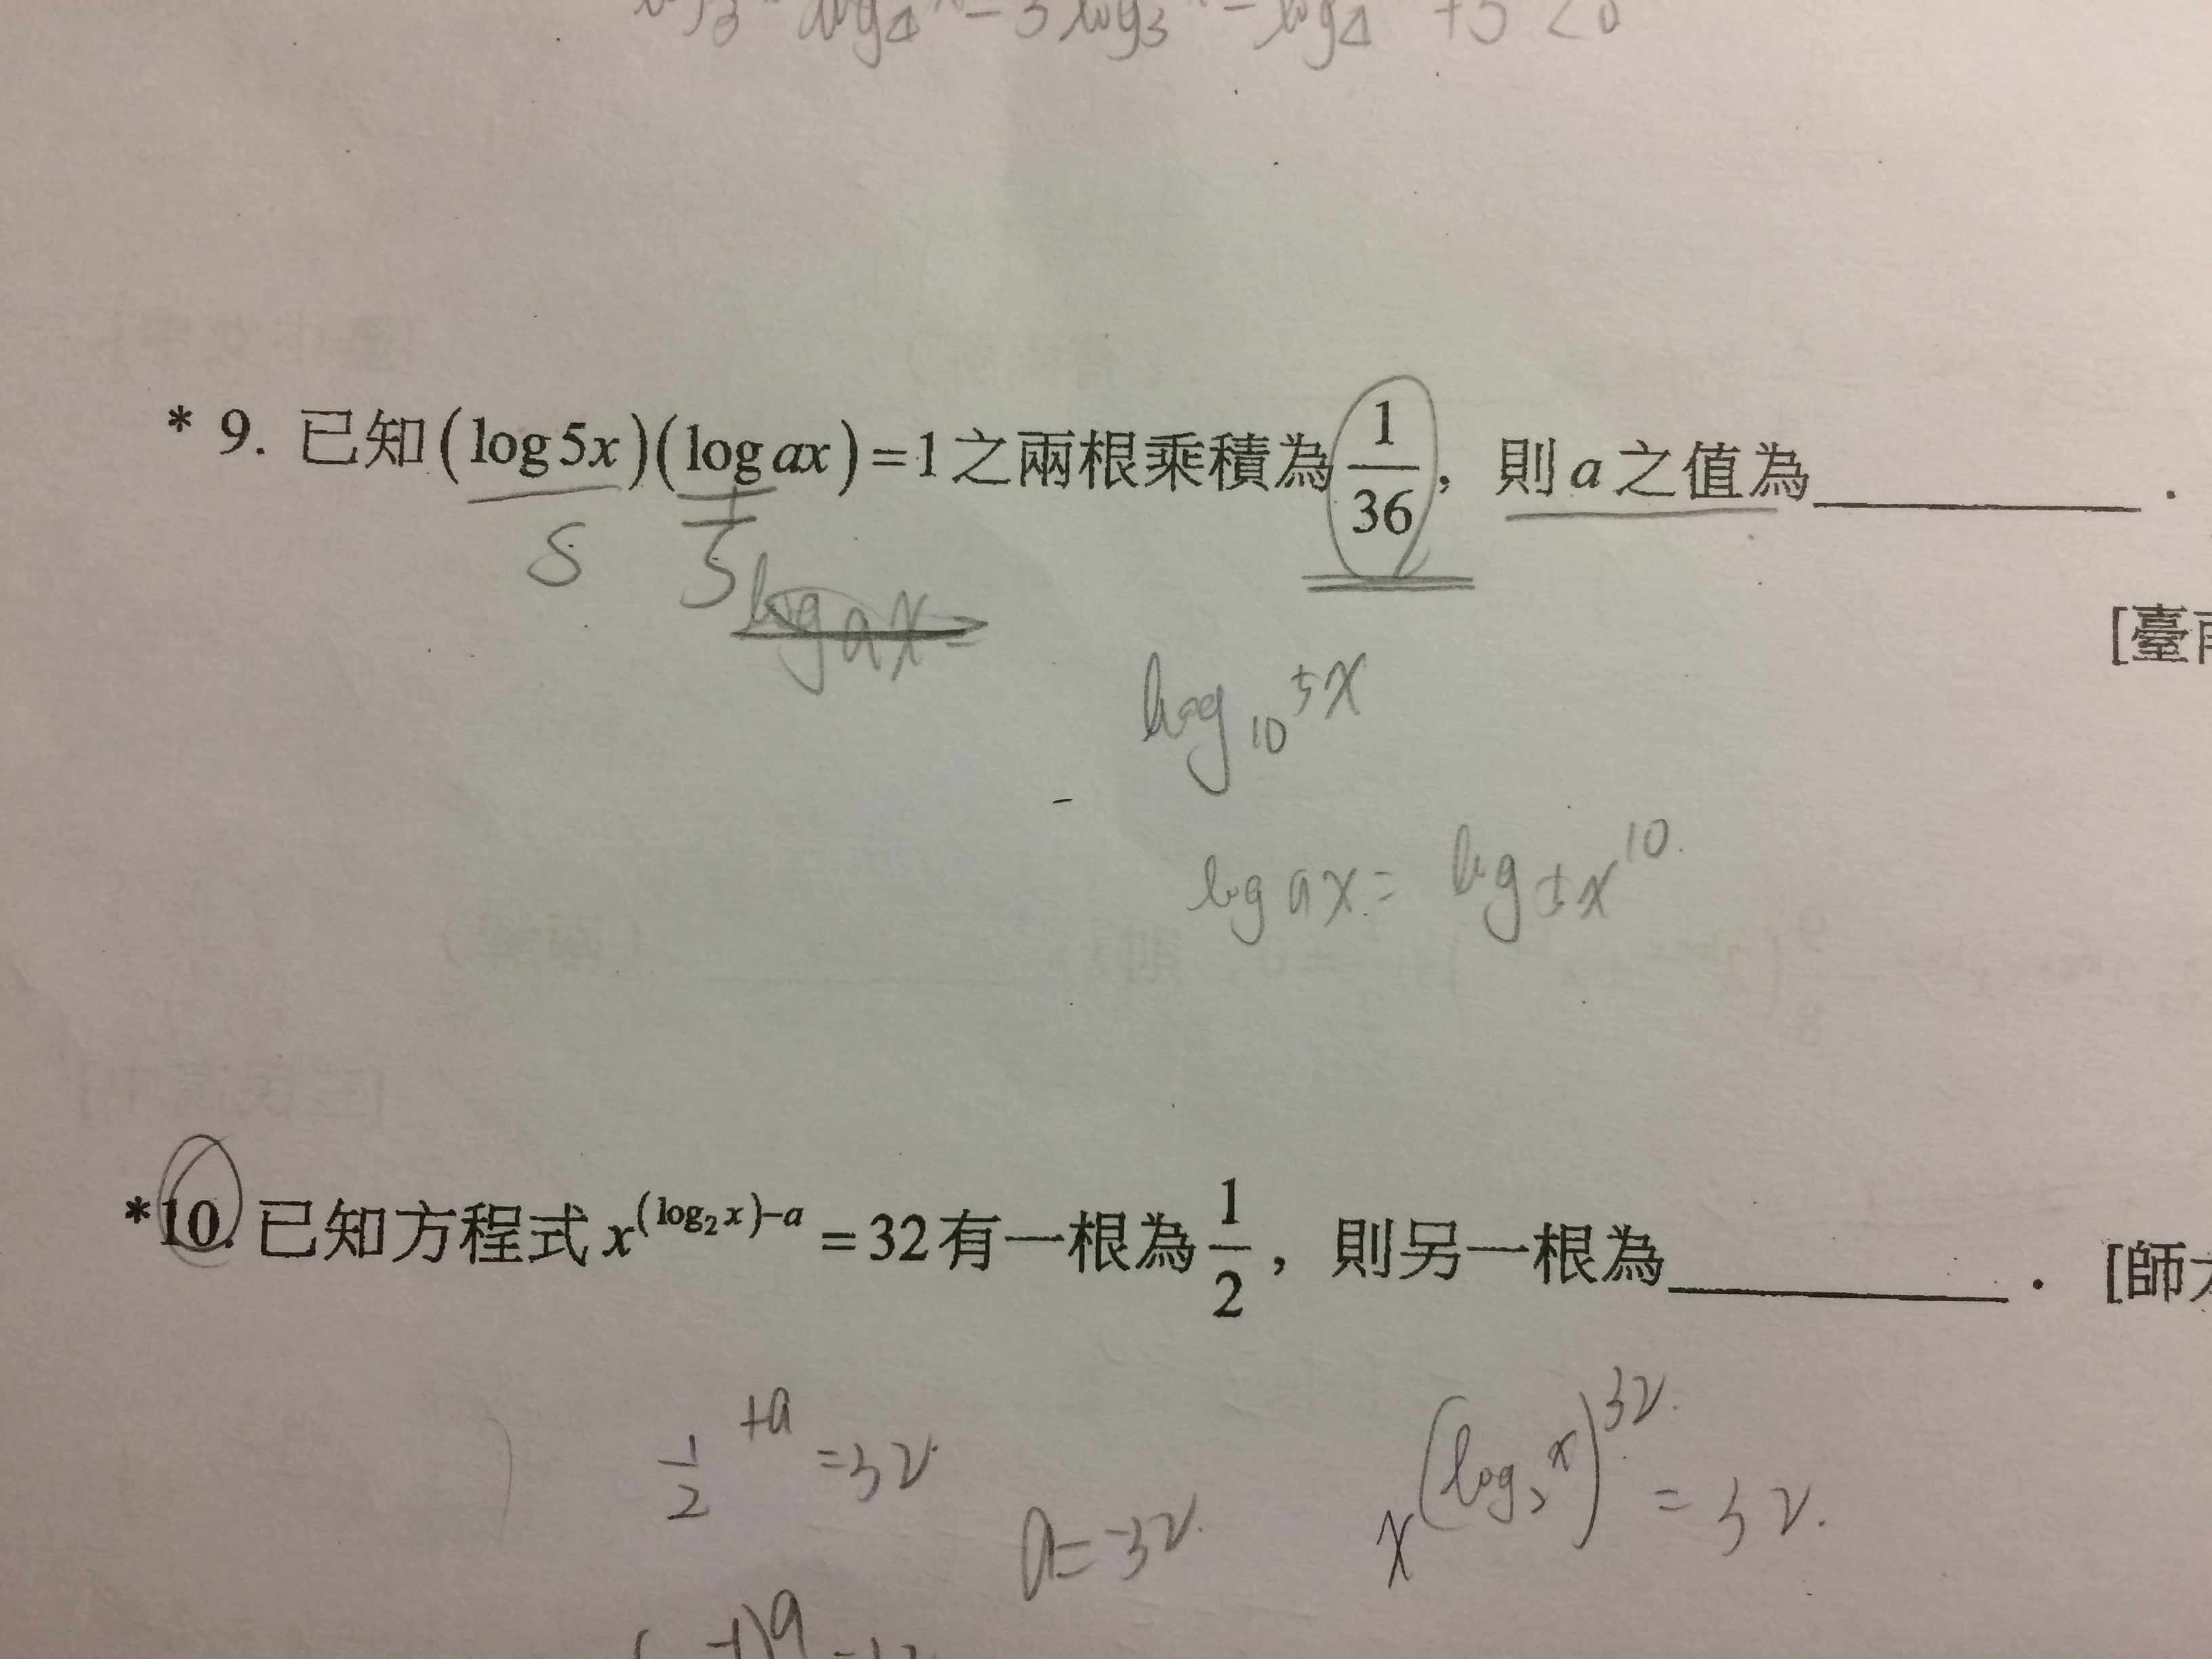 - 3 log₃ - log₄ +3 < 0
* 9. 已知(log5x)(log ax)=1之兩根乘積為1/36，則a之值為________．
5 1/5
log ax =
[臺南
log₁₀ 5x
log ax = log 5x ¹⁰
*10. 已知方程式x^((log₂x)-a)=32有一根為1/2，則另一根為________．[師大
1/2 ^+a =32
x^(log₂x)^32 = 32.
a=-32